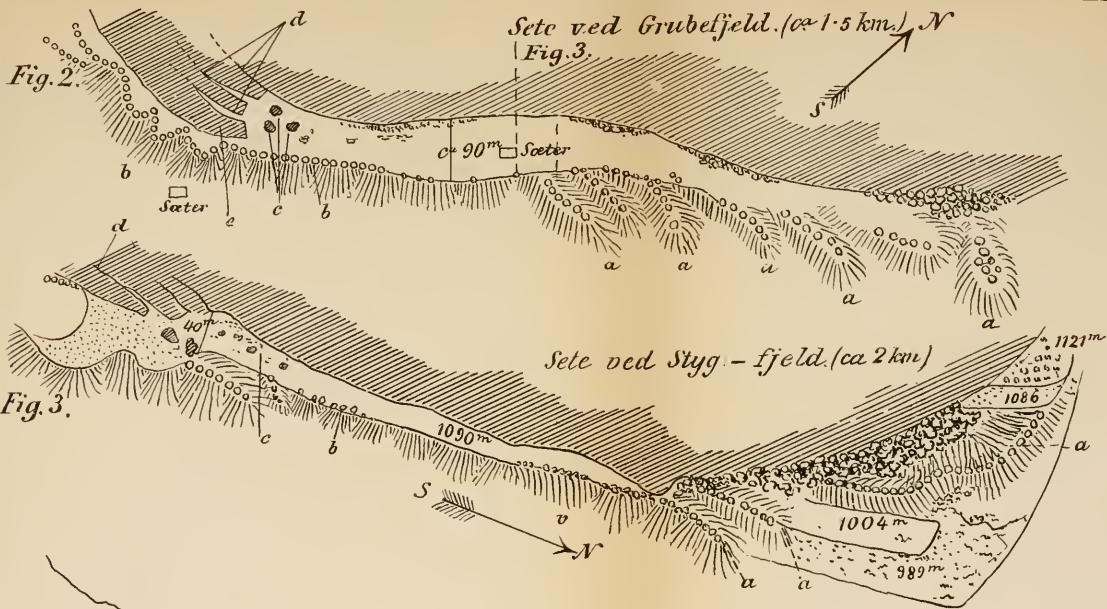 d
Sete ved Grubefjeld. (ca 1·5 km.)
N
Fig. 3.
Fig. 2.
S
ca 90 m
Sæter
b
Sæter
e
c
b
a
a
a
a
a
d
40 m
Sete ved Styg-fjeld. (ca 2 km)
1121 m
1086
Fig. 3.
a
c
b
1090 m
S
v
N
1004 m
989 m
a
a